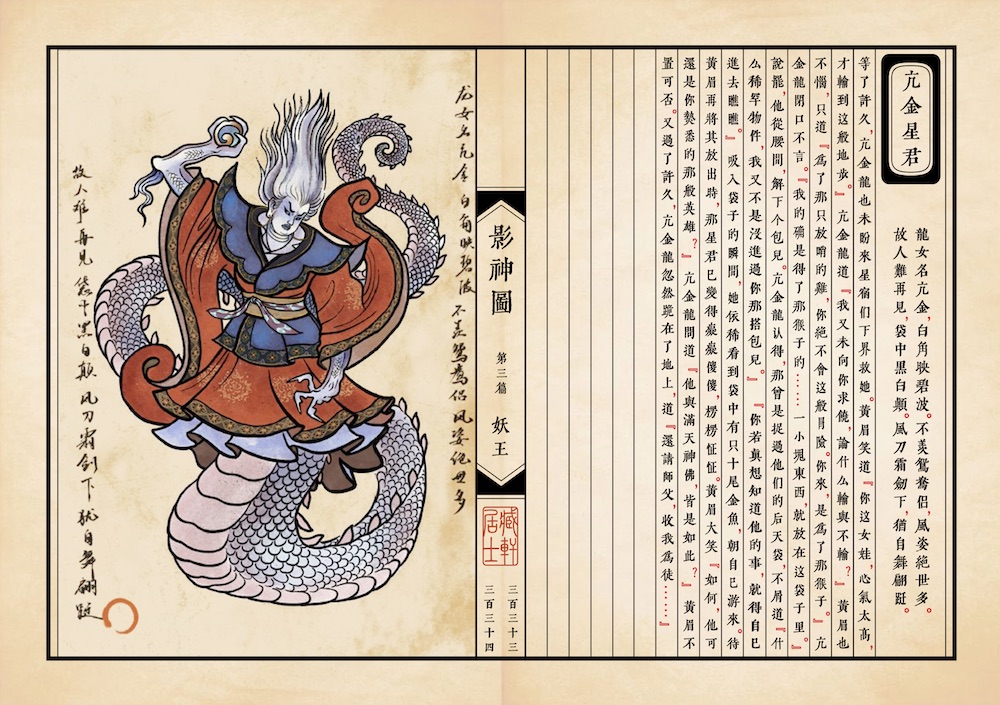 亢金星君
龍女名亢金，白角映碧波。不羨鴛鴦侶，風姿絕世多。
故人難再見，袋中黑白顛。風刀霜劍下，猶自舞翩躚。
等了許久，亢金龍也未盼來星宿们下界救她。黃眉笑道『你这女娃，心氣太高，
才輸到这般地步。』亢金龍道『我又未向你求饒，論什么輸與不輸？』黃眉也
不惱，只道『為了那只放哨的雞，你絕不會这般冒險。你來，是為了那猴子。』亢
金龍閉口不言。『我的確是得了那猴子的……一小塊東西，就放在这袋子里。』
說罷，他從腰間，解下个包兒。亢金龍认得，那曾是捉過他们的后天袋，不屑道『什
么稀罕物件，我又不是沒進過你那搭包兒。』『你若真想知道他的事，就得自己
進去瞧瞧。』吸入袋子的瞬間，她依稀看到袋中有只十尾金魚，朝自己游來。待
黃眉再將其放出時，那星君已變得癡癡傻傻，楞楞怔怔。黃眉大笑『如何，他可
還是你熟悉的那般英雄？』亢金龍問道『他與滿天神佛，皆是如此？』黃眉不
置可否。又過了許久，亢金龍忽然跪在了地上，道『還請師父，收我為徒……』
影神圖
第三篇
妖王
藏軒
居士
三百三十三
三百三十四
龙女名亢金 白角映碧波 不羡鸳鸯侣 风姿绝世多
故人难再见 袋中黑白颠 风刀霜剑下 犹自舞翩跹